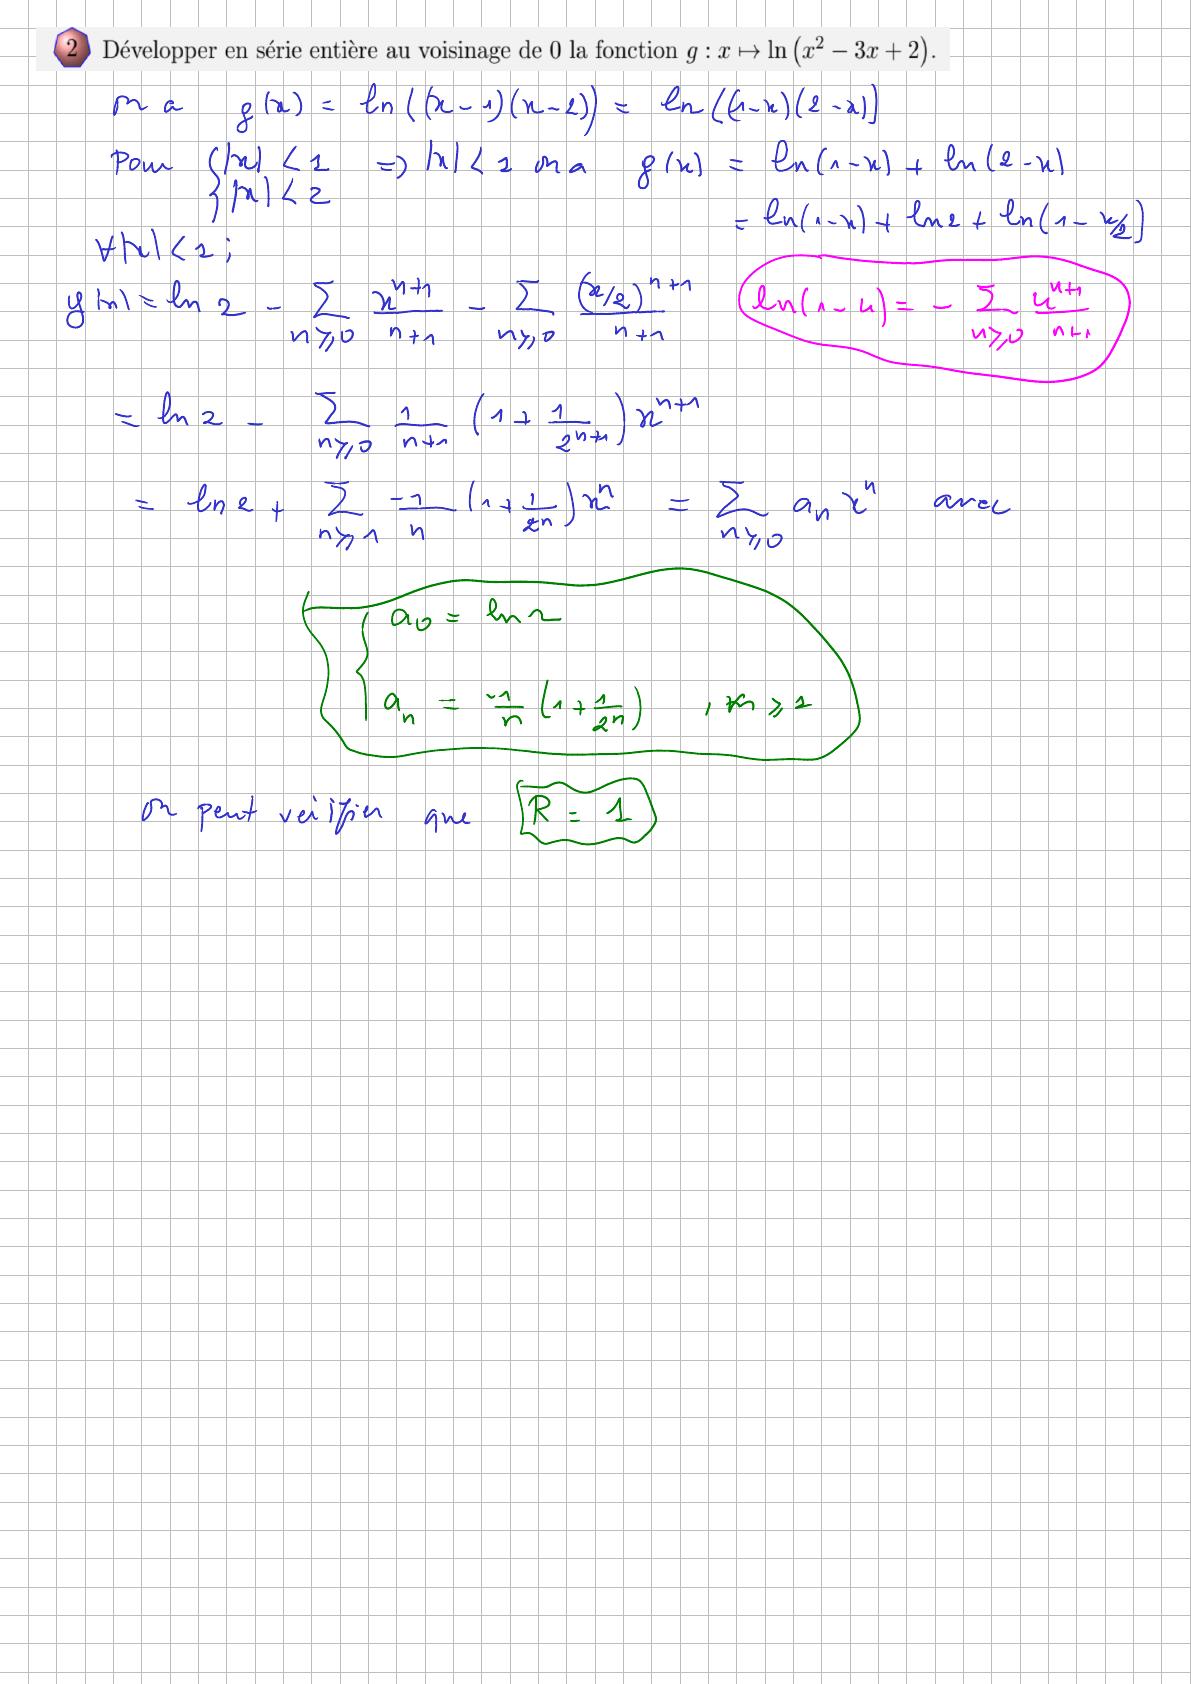 2 Développer en série entière au voisinage de 0 la fonction g : x ↦ ln (x² − 3x + 2).
on a g(x) = ln((x−1)(x−2)) = ln((1−x)(2−x))
Pour { |x| < 1 => |x| < 1 on a g(x) = ln(1−x) + ln(2−x)
|x| < 2
= ln(1−x) + ln2 + ln(1 − x/2)
∀|x| < 1 ;
g(x) = ln 2 − ∑_{n≥0} x^{n+1}/(n+1) − ∑_{n≥0} (x/2)^{n+1}/(n+1)
ln(1−u) = − ∑_{n≥0} u^{n+1}/(n+1)
= ln 2 − ∑_{n≥0} 1/(n+1) (1 + 1/2^{n+1}) x^{n+1}
= ln 2 + ∑_{n≥1} −1/n (1 + 1/2^n) x^n = ∑_{n≥0} a_n x^n avec
{ a_0 = ln 2
a_n = −1/n (1 + 1/2^n) , n ≥ 1
on peut vérifier que R = 1